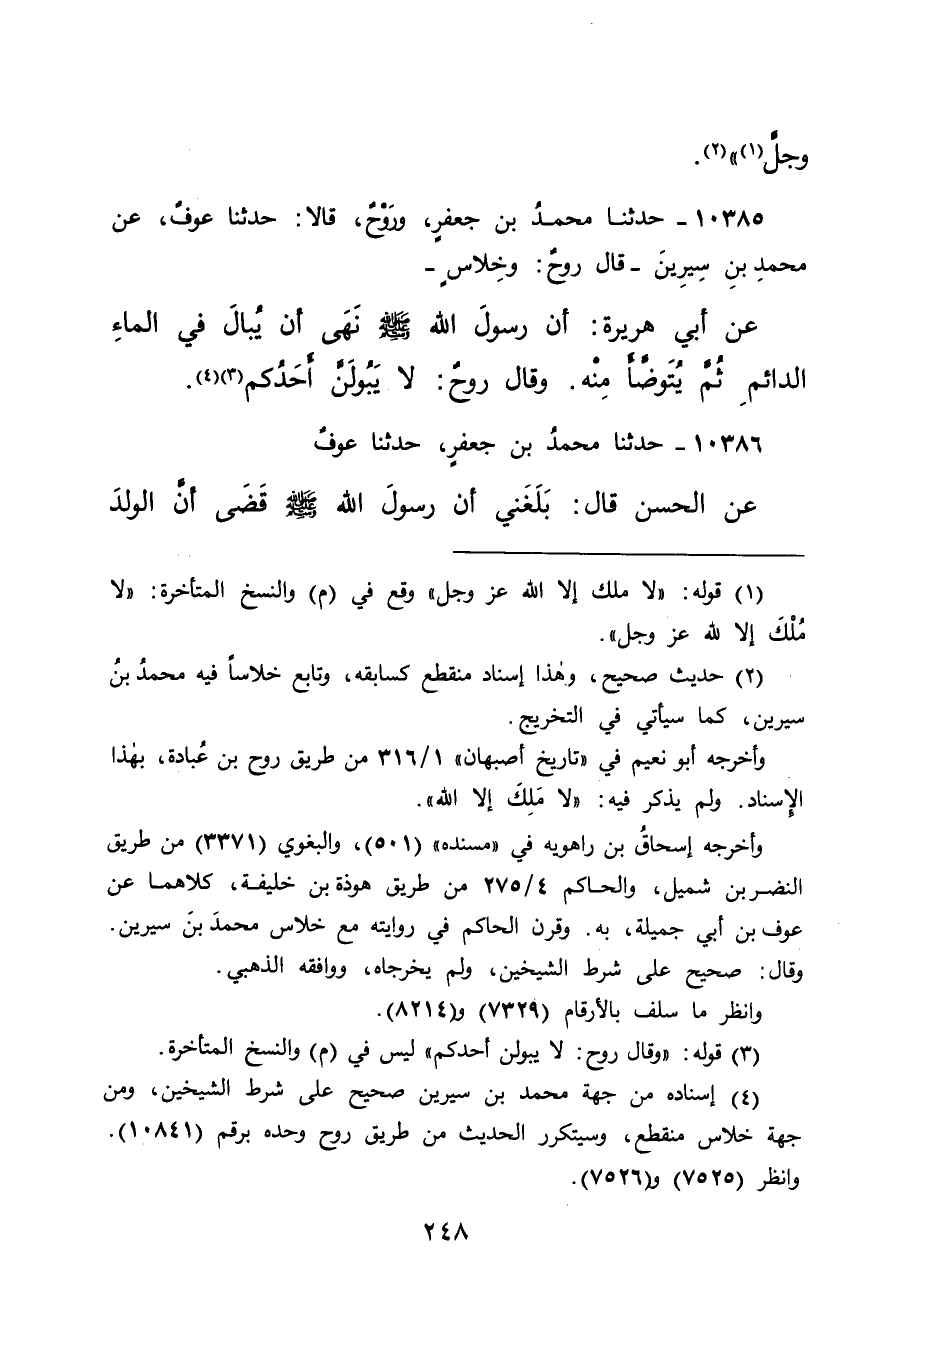 وجلَّ(١)»(٢).
١٠٣٨٥ ـ حدثنا محمدُ بن جعفرٍ، ورَوْحٌ، قالا: حدثنا عوفٌ، عن
محمدِ بنِ سِيرِينَ ـ قال روحٌ: وخِلاسٍ ـ
عن أبي هريرة: أن رسولَ الله ﷺ نَهَى أن يُبالَ في الماءِ
الدائمِ ثُمَّ يُتَوضَّأَ مِنْه. وقال روحٌ: لا يَبُولَنَّ أَحَدُكم(٣)(٤).
١٠٣٨٦ ـ حدثنا محمدُ بن جعفرٍ، حدثنا عوفٌ
عن الحسن قال: بَلَغَني أن رسولَ الله ﷺ قَضَى أنَّ الولدَ
(١) قوله: «لا ملك إلا الله عز وجل» وقع في (م) والنسخ المتأخرة: «لا
مُلْكَ إلا لله عز وجل».
(٢) حديث صحيح، وهٰذا إسناد منقطع كسابقه، وتابع خلاساً فيه محمدُ بنُ
سيرين، كما سيأتي في التخريج.
وأخرجه أبو نعيم في «تاريخ أصبهان» ٣١٦/١ من طريق روح بن عُبادة، بهٰذا
الإسناد. ولم يذكر فيه: «لا مَلِكَ إلا الله».
وأخرجه إسحاقُ بن راهويه في «مسنده» (٥٠١)، والبغوي (٣٣٧١) من طريق
النضر بن شميل، والحاكم ٢٧٥/٤ من طريق هوذة بن خليفة، كلاهما عن
عوف بن أبي جميلة، به. وقرن الحاكم في روايته مع خلاس محمدَ بنَ سيرين.
وقال: صحيح على شرط الشيخين، ولم يخرجاه، ووافقه الذهبي.
وانظر ما سلف بالأرقام (٧٣٢٩) و(٨٢١٤).
(٣) قوله: «وقال روح: لا يبولن أحدكم» ليس في (م) والنسخ المتأخرة.
(٤) إسناده من جهة محمد بن سيرين صحيح على شرط الشيخين، ومن
جهة خلاس منقطع، وسيتكرر الحديث من طريق روح وحده برقم (١٠٨٤١).
وانظر (٧٥٢٥) و(٧٥٢٦).
٢٤٨